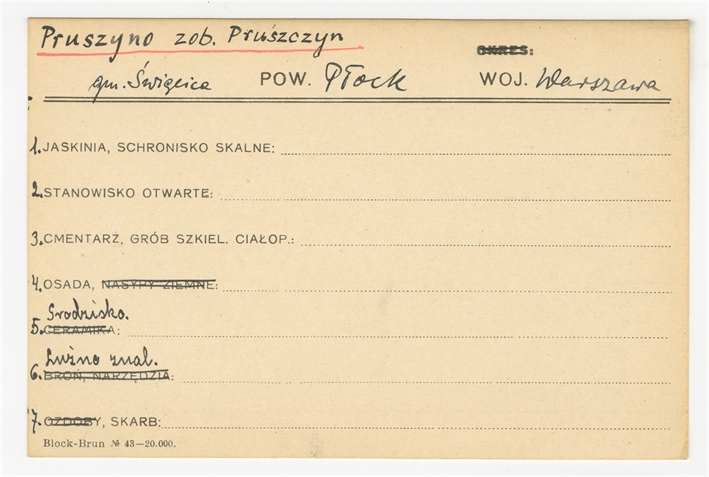 Pruszyno zob. Pruszczyn
OKRES:
gm. Święcice POW. Płock WOJ. Warszawa
1. JASKINIA, SCHRONISKO SKALNE:
2. STANOWISKO OTWARTE:
3. CMENTARZ, GRÓB SZKIEL. CIAŁOP.:
4. OSADA, NASYPY ZIEMNE:
Grodzisko.
5. CERAMIKA:
Luźno znal.
6. BROŃ, NARZĘDZIA:
7. OZDOBY, SKARB:
Block-Brun № 43—20.000.